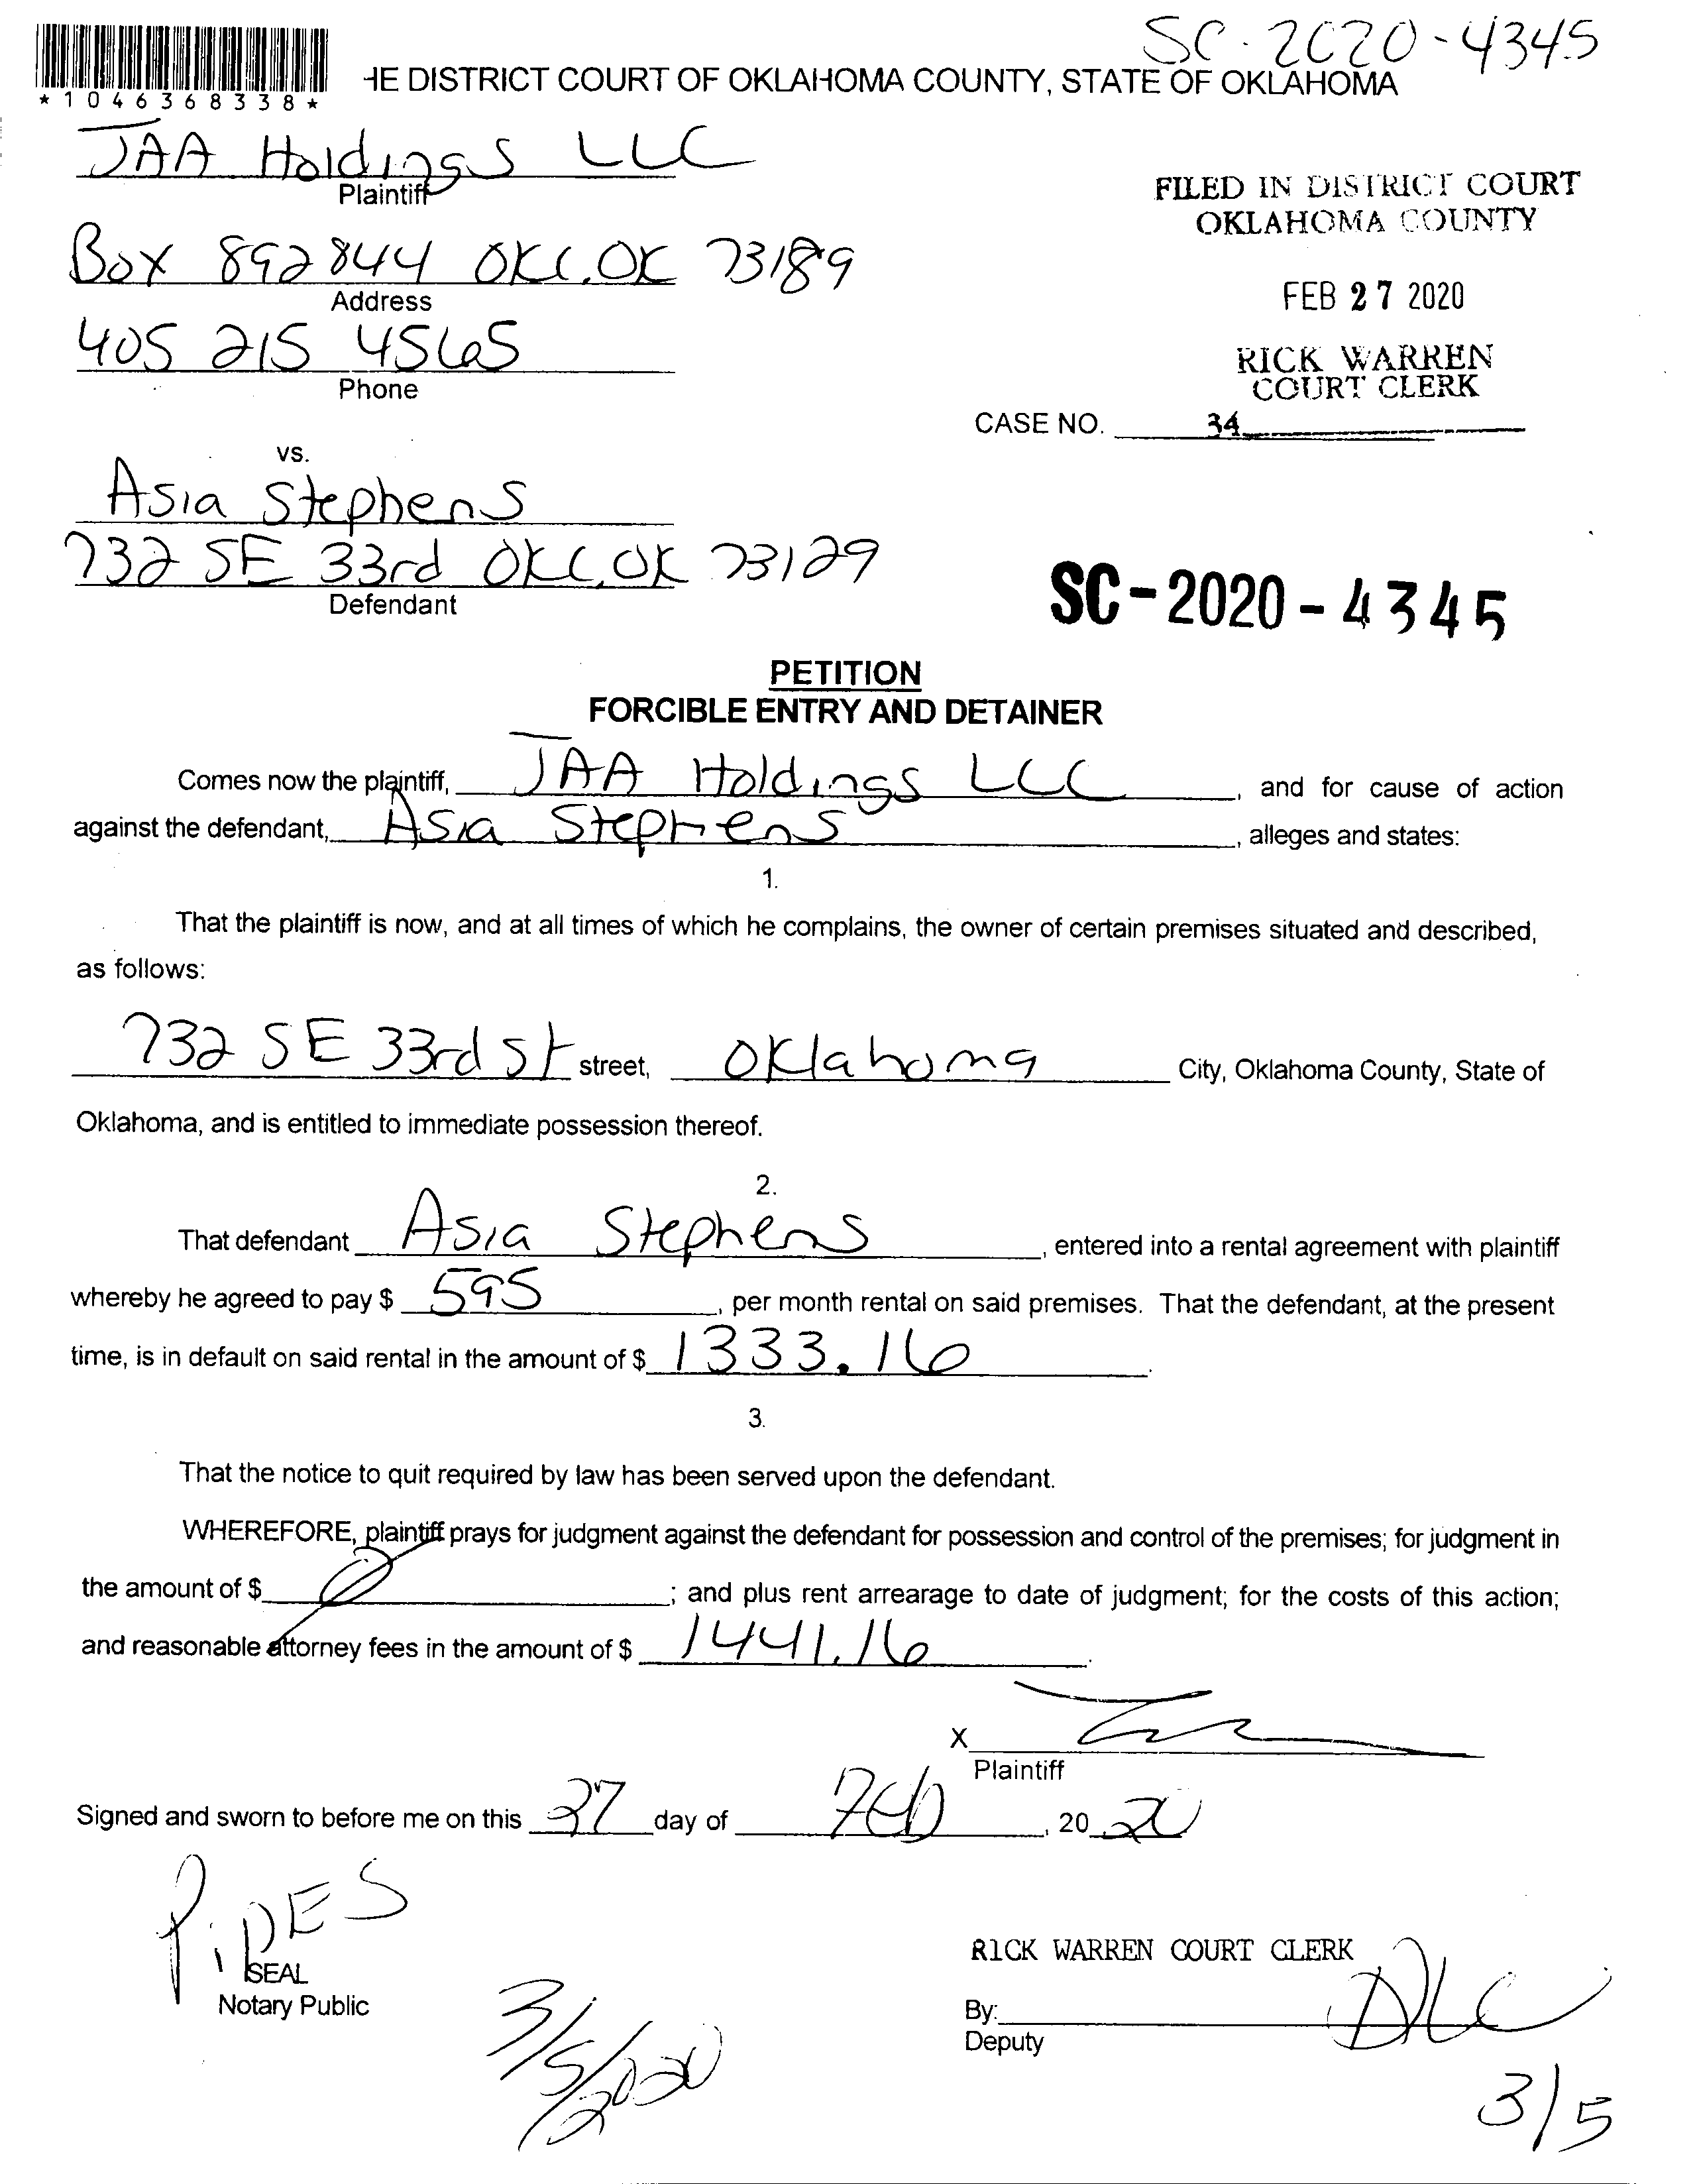 SC-2020-4345
*1046368338*
HE DISTRICT COURT OF OKLAHOMA COUNTY, STATE OF OKLAHOMA
JAA Holdings LLC
Plaintiff
FILED IN DISTRICT COURT
OKLAHOMA COUNTY
Box 892844 OKC, OK 73189
Address
FEB 27 2020
405 215 4565
Phone
RICK WARREN
COURT CLERK
CASE NO. 34
vs.
Asia Stephens
732 SE 33rd OKC, OK 73129
Defendant
SC-2020-4345
PETITION
FORCIBLE ENTRY AND DETAINER
Comes now the plaintiff, JAA Holdings LLC, and for cause of action
against the defendant, Asia Stephens, alleges and states:
1.
That the plaintiff is now, and at all times of which he complains, the owner of certain premises situated and described,
as follows:
732 SE 33rd St street, Oklahoma City, Oklahoma County, State of
Oklahoma, and is entitled to immediate possession thereof.
2.
That defendant Asia Stephens, entered into a rental agreement with plaintiff
whereby he agreed to pay $ 595, per month rental on said premises. That the defendant, at the present
time, is in default on said rental in the amount of $ 1333.16.
3.
That the notice to quit required by law has been served upon the defendant.
WHEREFORE, plaintiff prays for judgment against the defendant for possession and control of the premises; for judgment in
the amount of $ 0; and plus rent arrearage to date of judgment; for the costs of this action;
and reasonable attorney fees in the amount of $ 1441.16.
X
Plaintiff
Signed and sworn to before me on this 27 day of Feb, 20 20
PiPES
SEAL
Notary Public
3/5/2020
RICK WARREN COURT CLERK
By:
Deputy
3/5